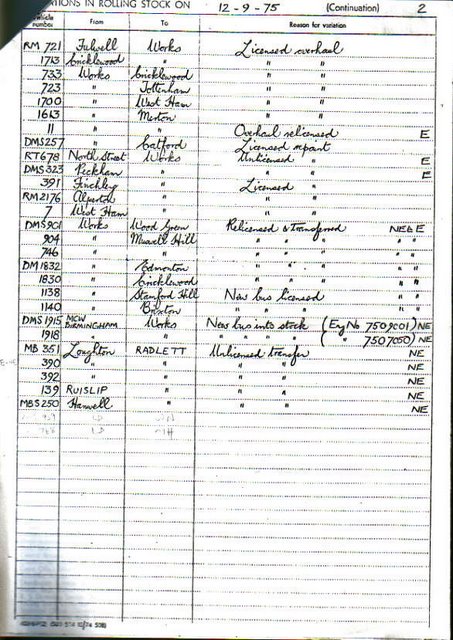 ATIONS IN ROLLING STOCK ON 12-9-75 (Continuation) 2
Vehicle number From To Reason for variation
RM 721 Fulwell Works Licensed overhaul
1713 Cricklewood " " "
733 Works Cricklewood " "
723 " Tottenham " "
1700 " West Ham " "
1613 " Merton " "
11 " " Overhaul relicensed E
DMS 257 " Catford Licensed repaint
RT 678 North Street Works Unlicensed " E
DMS 323 Peckham " " E
391 Finchley " Licensed "
RM 2176 Alperton " " "
7 West Ham " " "
DMS 901 Works Wood Green Relicensed & transferred NE & E
904 " Muswell Hill " " " " "
746 " " " " " " "
DM 1832 " Edmonton " " " " "
1830 " Cricklewood " " " " "
1138 " Stamford Hill New bus licensed " "
1140 " Brixton " " " " "
DMS 1915 MCW BIRMINGHAM Works New bus into stock (Eng No 7509001) NE
1918 " " " " " " ( " 7507050) NE
MB 351 Loughton RADLETT Unlicensed transfer NE
390 " " " " NE
392 " " " " NE
139 RUISLIP " " " NE
MBS 250 Hanwell " " " NE